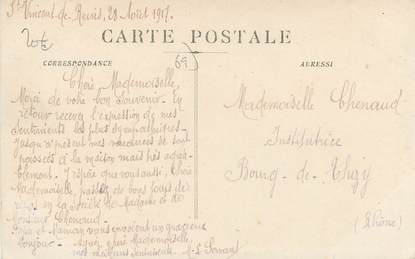 St Vincent-de-Reins, 28 Août 1917.
CARTE POSTALE
CORRESPONDANCE
69
ADRESSE
Chère Mademoiselle,
Merci de votre bon souvenir. En
retour recevez l'expression de mes
sentiments les plus sympathiques.
Jusqu'à présent mes vacances se sont
passées à la maison mais très
J'espère que vous aussi, Chère
Mademoiselle, passez de bons jours de
repos en la Société de Madame et de
Monsieur Chenaud.
Papa et Maman vous envoient un gracieux
bonjour. Mademoiselle,
mes meilleurs sentiments.
Mademoiselle Chenaud
Institutrice
Bourg-de-Thizy
(Rhône)